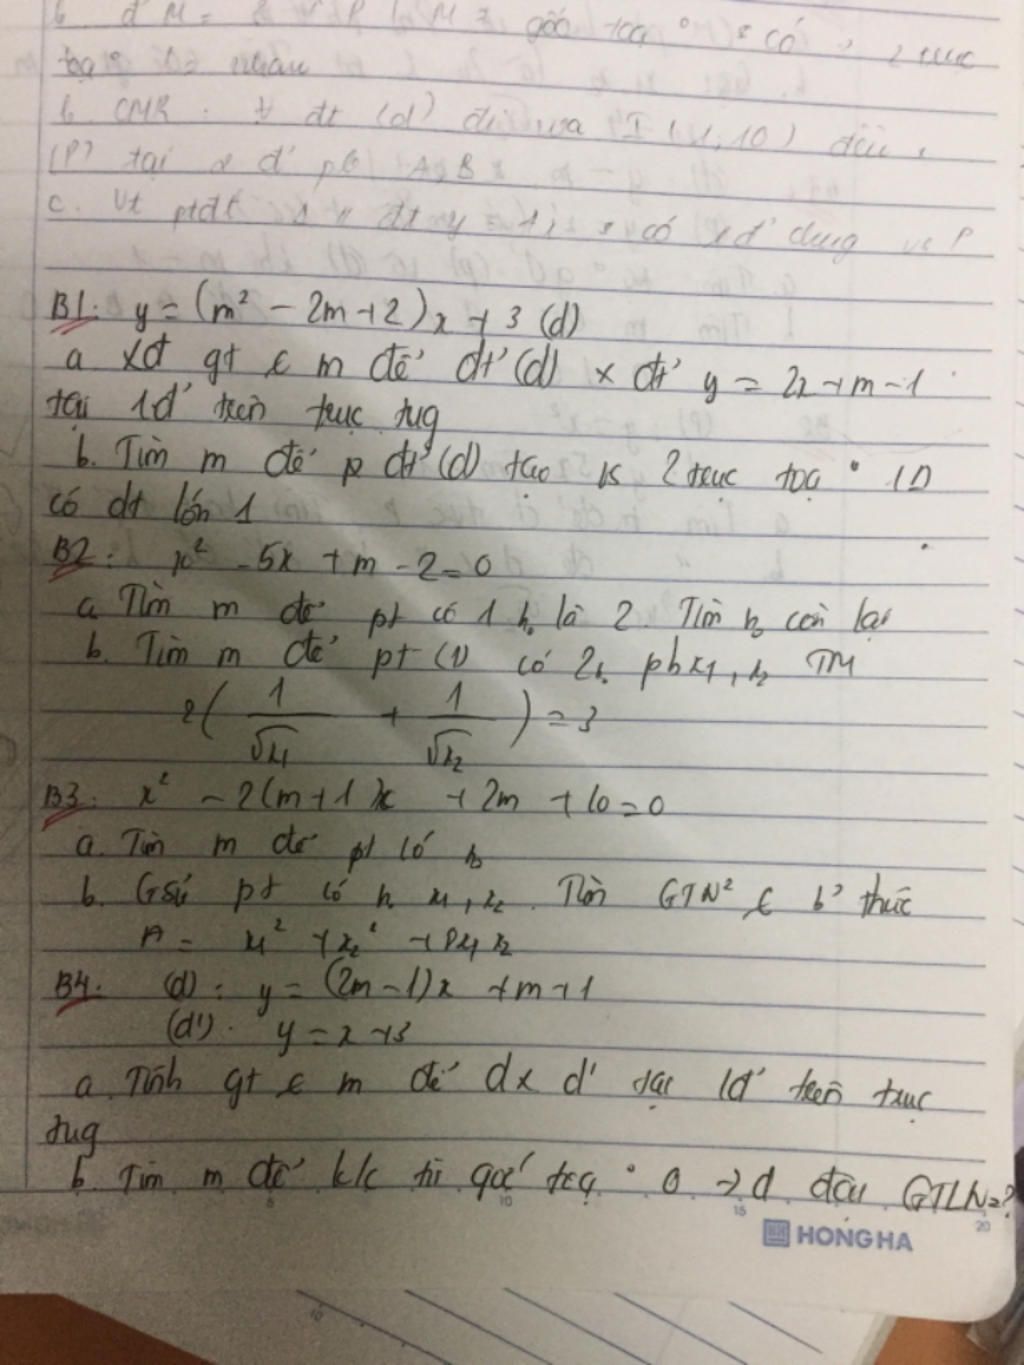 gốc toạ ° có 2 trục
toạ ° = nhau
b. CMR : ∀ đt (d) đi qua I ( , 10) đều
(P) tại 2 đ' pb A, B
c. Vt ptđt y có 1 đ' chung vs P
B1: y = (m² - 2m + 2)x + 3 (d)
a xđ gt € m để đt' (d) x đt' y = 2x + m - 1
tại 1đ' trên trục tug
b. Tìm m để đt' (d) tạo vs 2 trục toạ ° 1 Δ
có dt lớn 1
B2: x² - 5x + m - 2 = 0
a Tìm m để pt có 1 n₀ là 2. Tìm n₀ còn lại
b. Tìm m để pt (1) có 2n₀ pb x1, x2 TM
2( 1/√x1 + 1/√x2 ) = 3
B3: x² - 2(m+1)x + 2m + 10 = 0
a. Tìm m để pt có n₀
b. Gsử pt có n₀ x1, x2. Tìm GTN² € b' thức
A = x1² + x2² + 8x1x2
B4: (d): y = (2m-1)x + m + 1
(d'). y = x + 3
a. Tính gt € m để d x d' tại 1đ' trên trục
tug
b. Tìm m để k/c từ gốc toạ ° O → d đạt GTLN=?
5 10 15 20
HONG HA